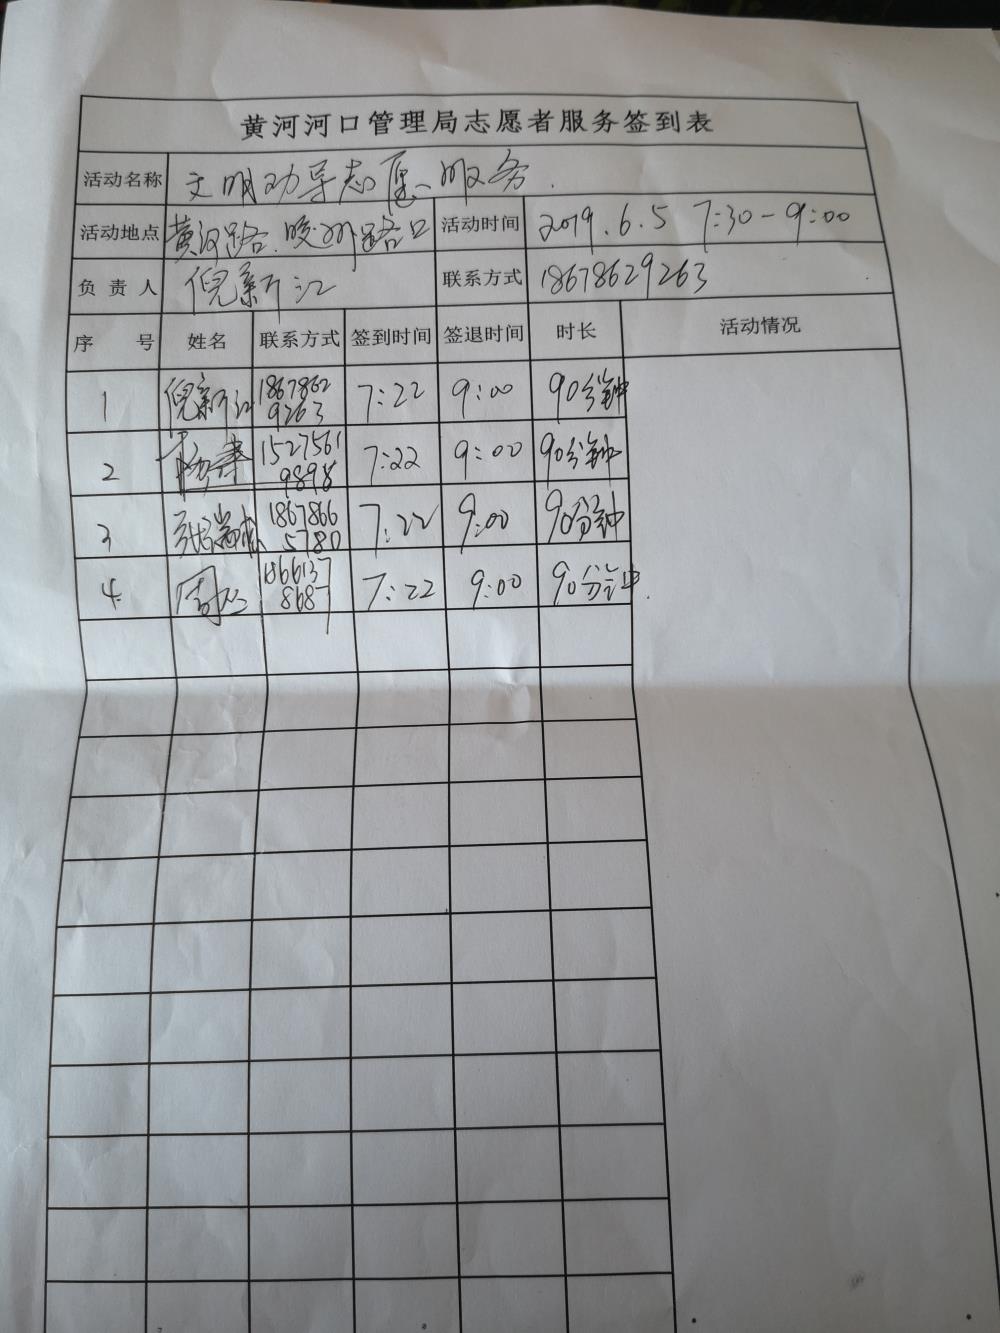 黄河河口管理局志愿者服务签到表
活动名称 文明劝导志愿服务.
活动地点 黄河路.胶州路路口 活动时间 2019.6.5 7:30-9:00
负责人 倪新江 联系方式 18678629263
序号 姓名 联系方式 签到时间 签退时间 时长 活动情况
1 倪新江 1867862
9263 7:22 9:00 90分钟
2 杨 1527561
9898 7:22 9:00 90分钟
3 张 1867866
5780 7:22 9:00 90分钟
4. 周 1866137
8687 7:22 9:00 90分钟.